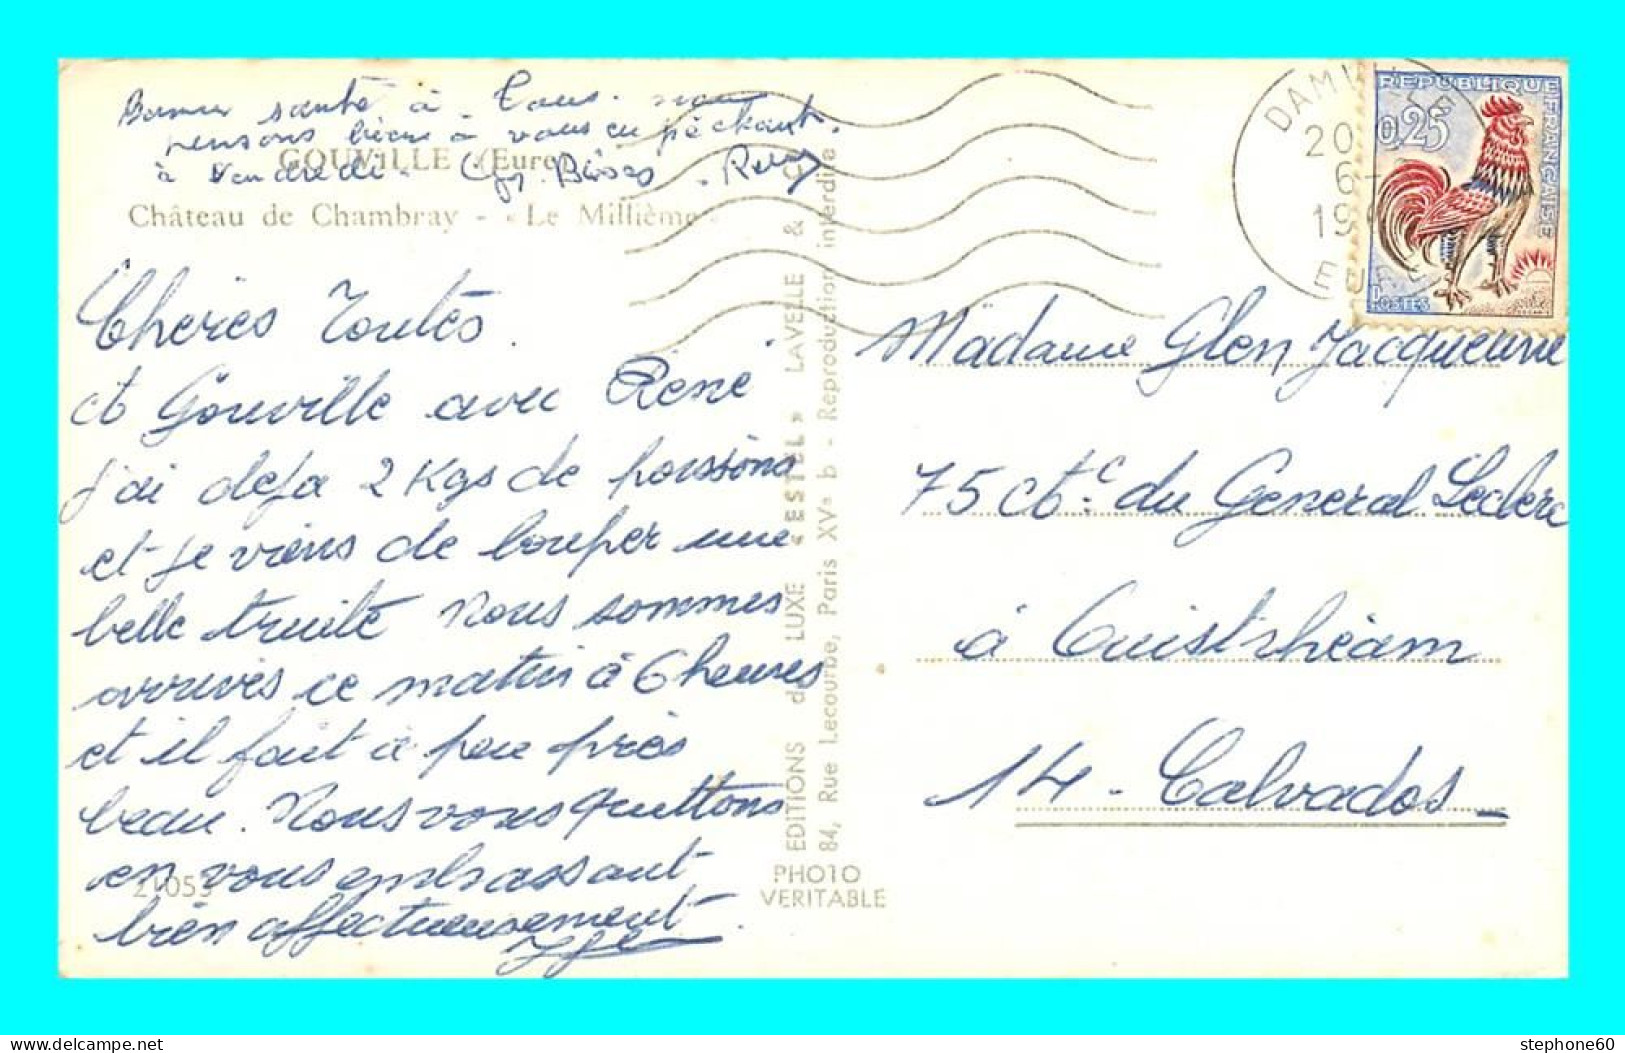 Bonne santé à Tous. nous
pensons bien à vous en pêchant.
à Vendredi. Gros Bises. René
GOUVILLE (Eure)
Château de Chambray - « Le Millième »
Chères Toutes.
ct Gouville avec René
j'ai deja 2 Kgs de poissons
et je viens de louper une
belle truite Nous sommes
arrivés ce matin à 6 heures
et il fait à peu près
beau. Nous vous quittons
en vous embrassant
bien affectueusement
21053
EDITIONS de LUXE « ESTEL » LAVELLE &
84, Rue Lecourbe, Paris XVe b - Reproduction interdite
PHOTO
VERITABLE
DAMV
20
6-
19
E
REPUBLIQUE FRANÇAISE
0,25
POSTES
Madame Glen Jacqueline
75 ct.c du General Leclerc
à Ouistrheam
14 - Calvados
stephone60